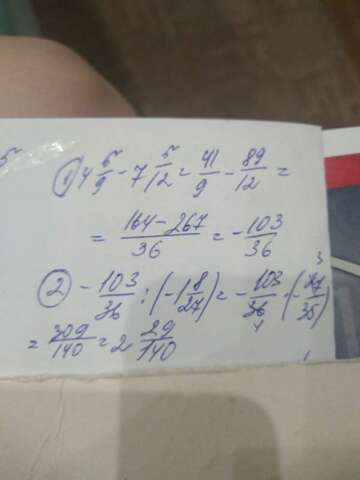 5
1) 4 5/9 - 7 5/12 = 41/9 - 89/12 =
= (164-267)/36 = -103/36
2) -103/36 : (-1 8/27) = -103/36 · (-27/35)
= 309/140 = 2 29/140